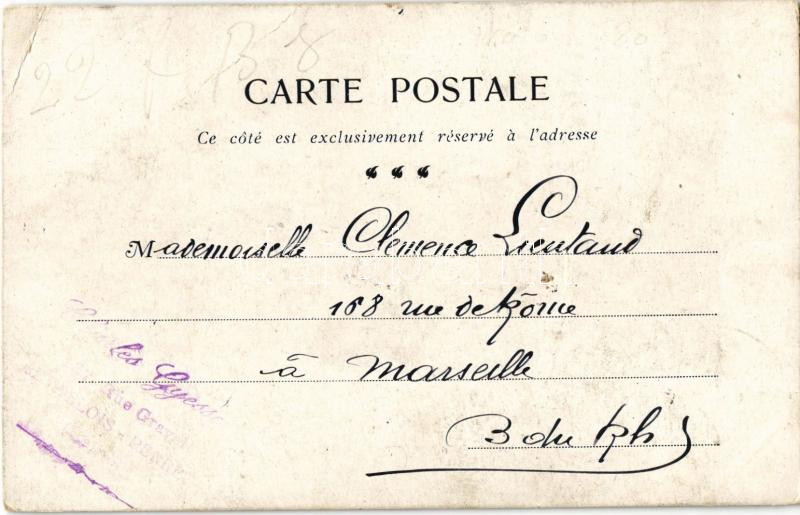 22
CARTE POSTALE
Ce côté est exclusivement réservé à l'adresse
Mademoiselle Clemence Lieutaud
168 rue de Rome
à Marseille
B du Rh
rue
LOIS